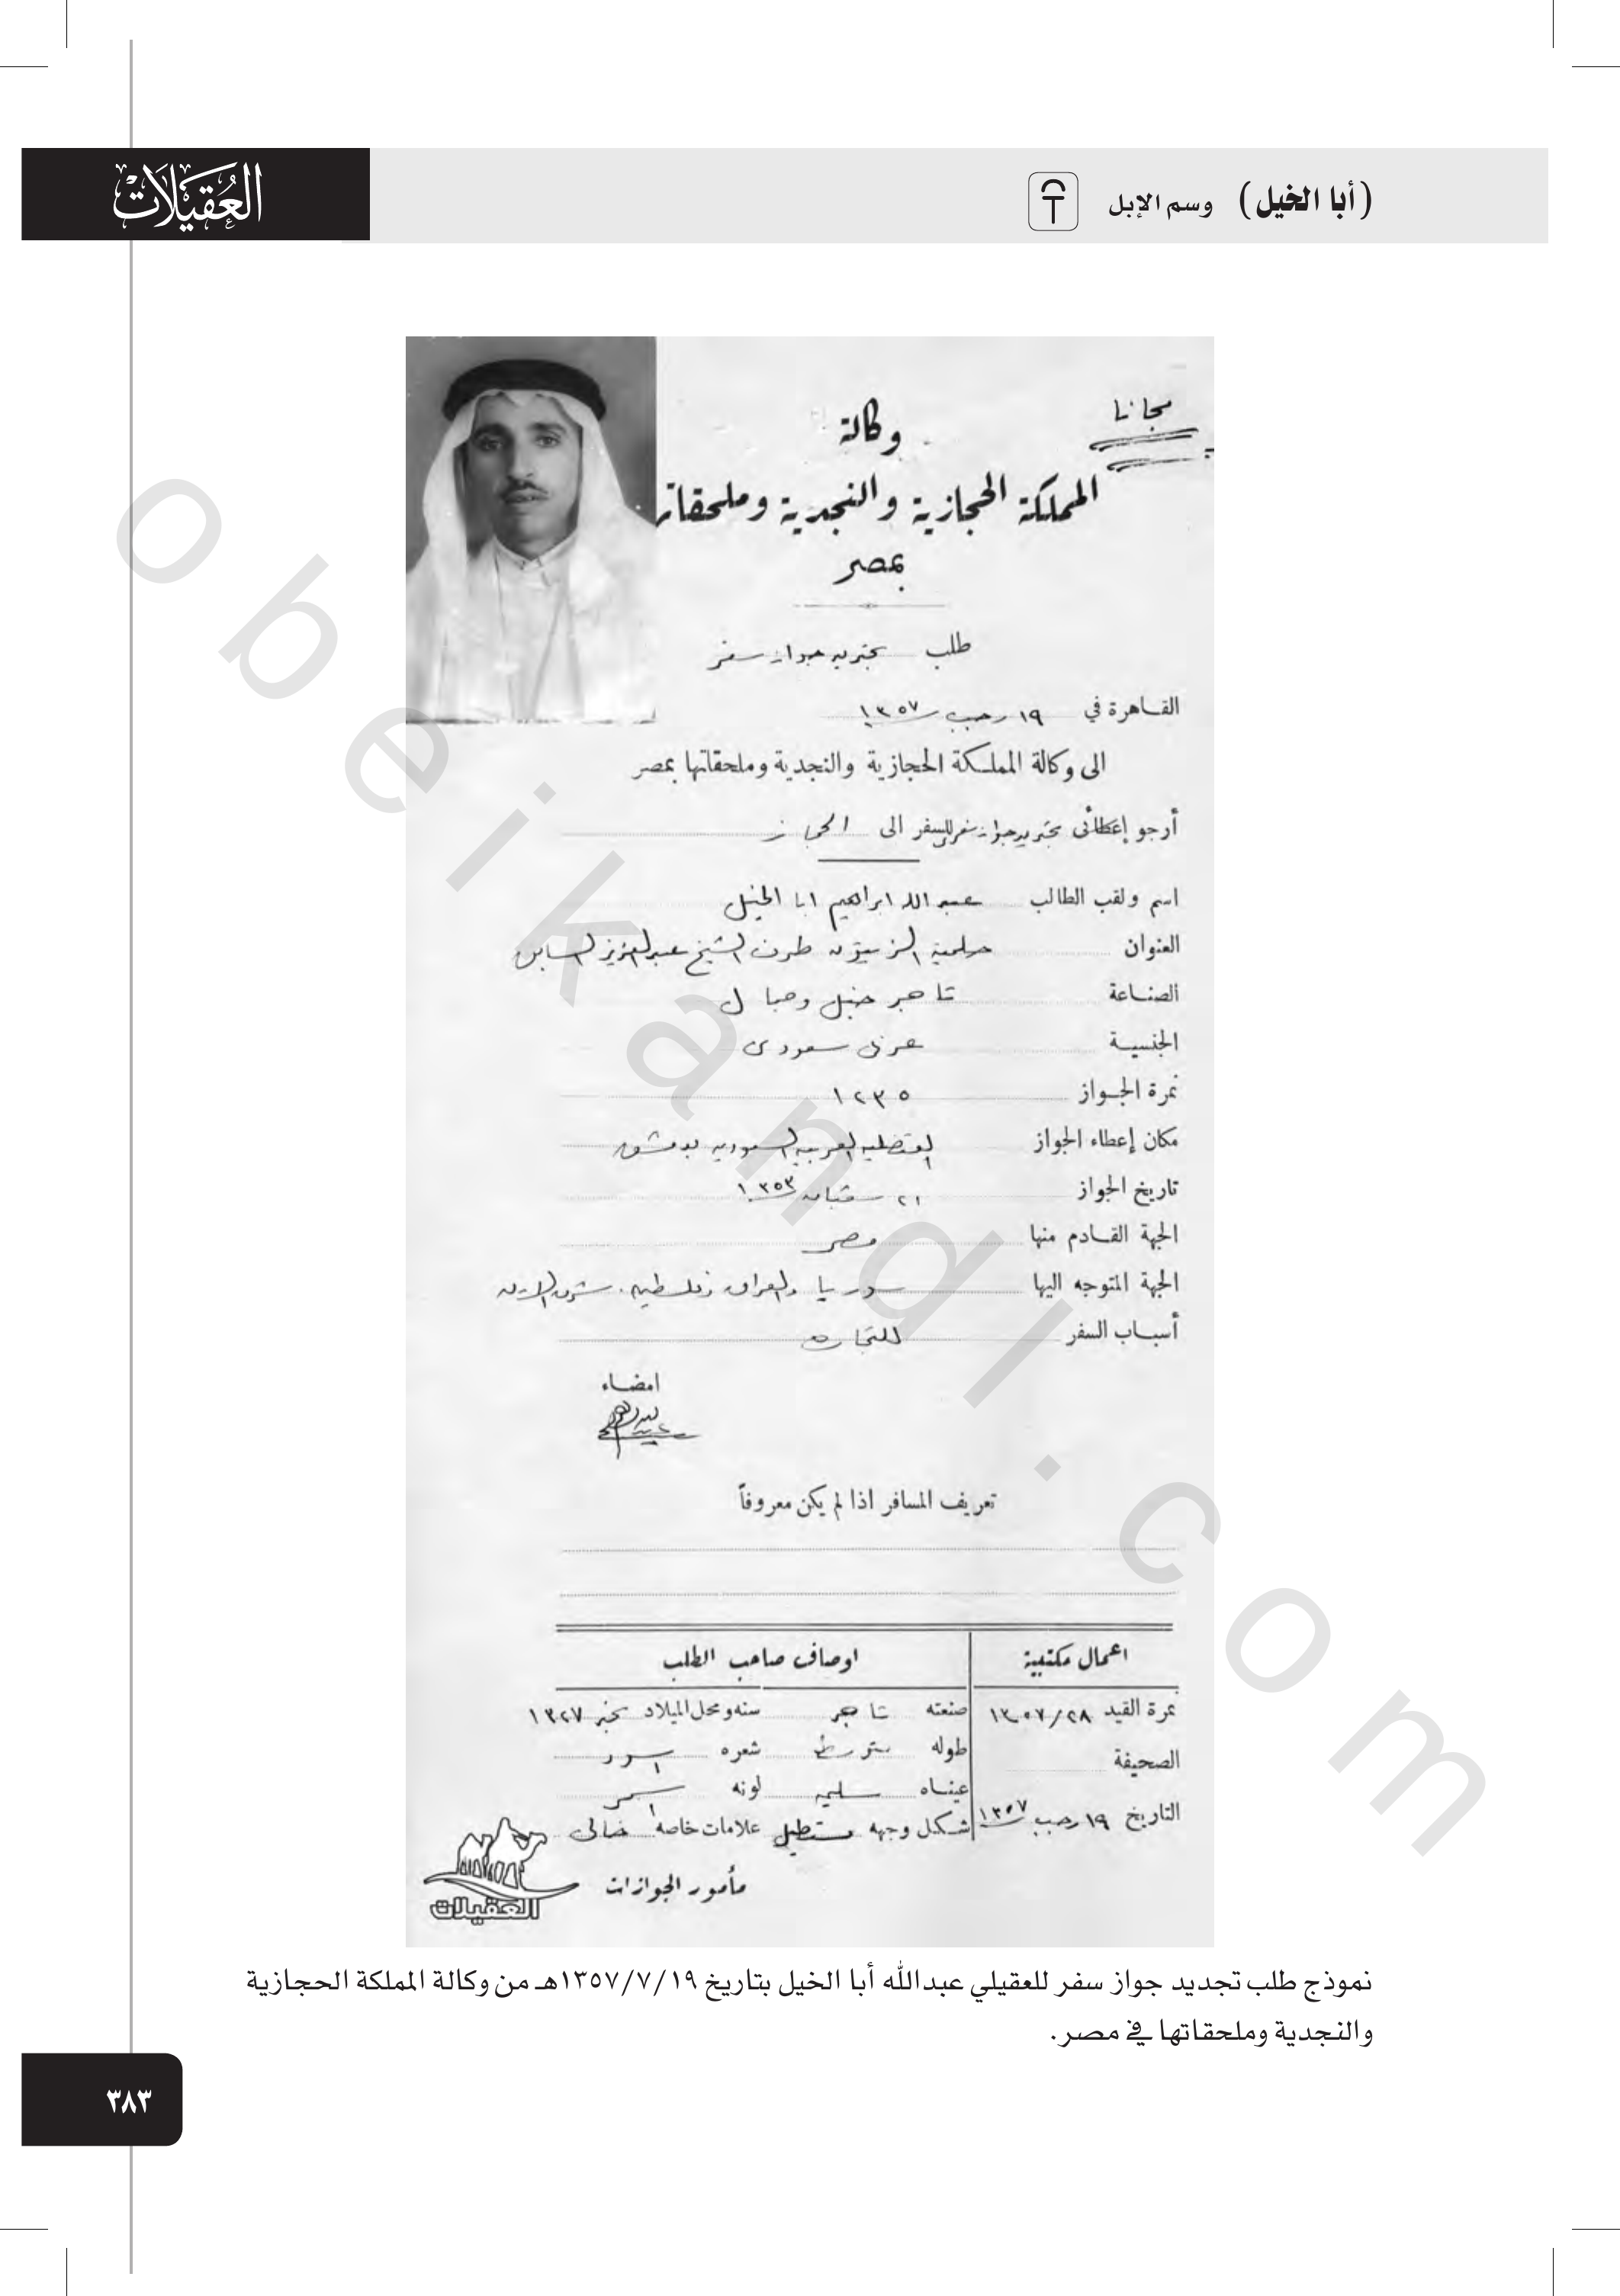 العُقَيْلَاتْ
(أبا الخيل) وسم الإبل
مجانا
وكالة
المملكة الحجازية والنجدية وملحقاتها
بمصر
طلب تجديد جواز سفر
القاهرة في ١٩ رجب ١٣٥٧
الى وكالة المملكة الحجازية والنجدية وملحقاتها بمصر
أرجو إعطائى تجديد جواز سفر للسفر الى الحجاز
اسم ولقب الطالب عبد الله ابراهيم ابا الخيل
العنوان حلمية الزيتون طرف الشيخ عبد العزيز السابق
الصناعة تاجر خيل وجمال
الجنسية عربى سعودى
نمرة الجواز ١٢٣٥
مكان إعطاء الجواز القنصلية العربية السعودية بدمشق
تاريخ الجواز ٢١ شعبان ١٣٥٣
الجهة القادم منها مصر
الجهة المتوجه اليها سوريا والعراق وفلسطين وشرق الاردن
أسباب السفر للتجارة
امضاء
تعريف المسافر اذا لم يكن معروفاً
اعمال مكتبية
اوصاف صاحب الطلب
نمرة القيد ١٣٥٧/٢٨ صنعته تاجر سنه ومحل الميلاد ١٣٢٧
الصحيفة طوله متوسط شعره اسود
عيناه سليمه لونه اسمر
التاريخ ١٩ رجب ١٣٥٧ شكل وجهه مستطيل علامات خاصه خالى
مأمور الجوازات
العقيلات
نموذج طلب تجديد جواز سفر للعقيلي عبدالله أبا الخيل بتاريخ ١٣٥٧/٧/١٩هـ من وكالة المملكة الحجازية
والنجدية وملحقاتها في مصر.
٣٨٣
obeikandl.com